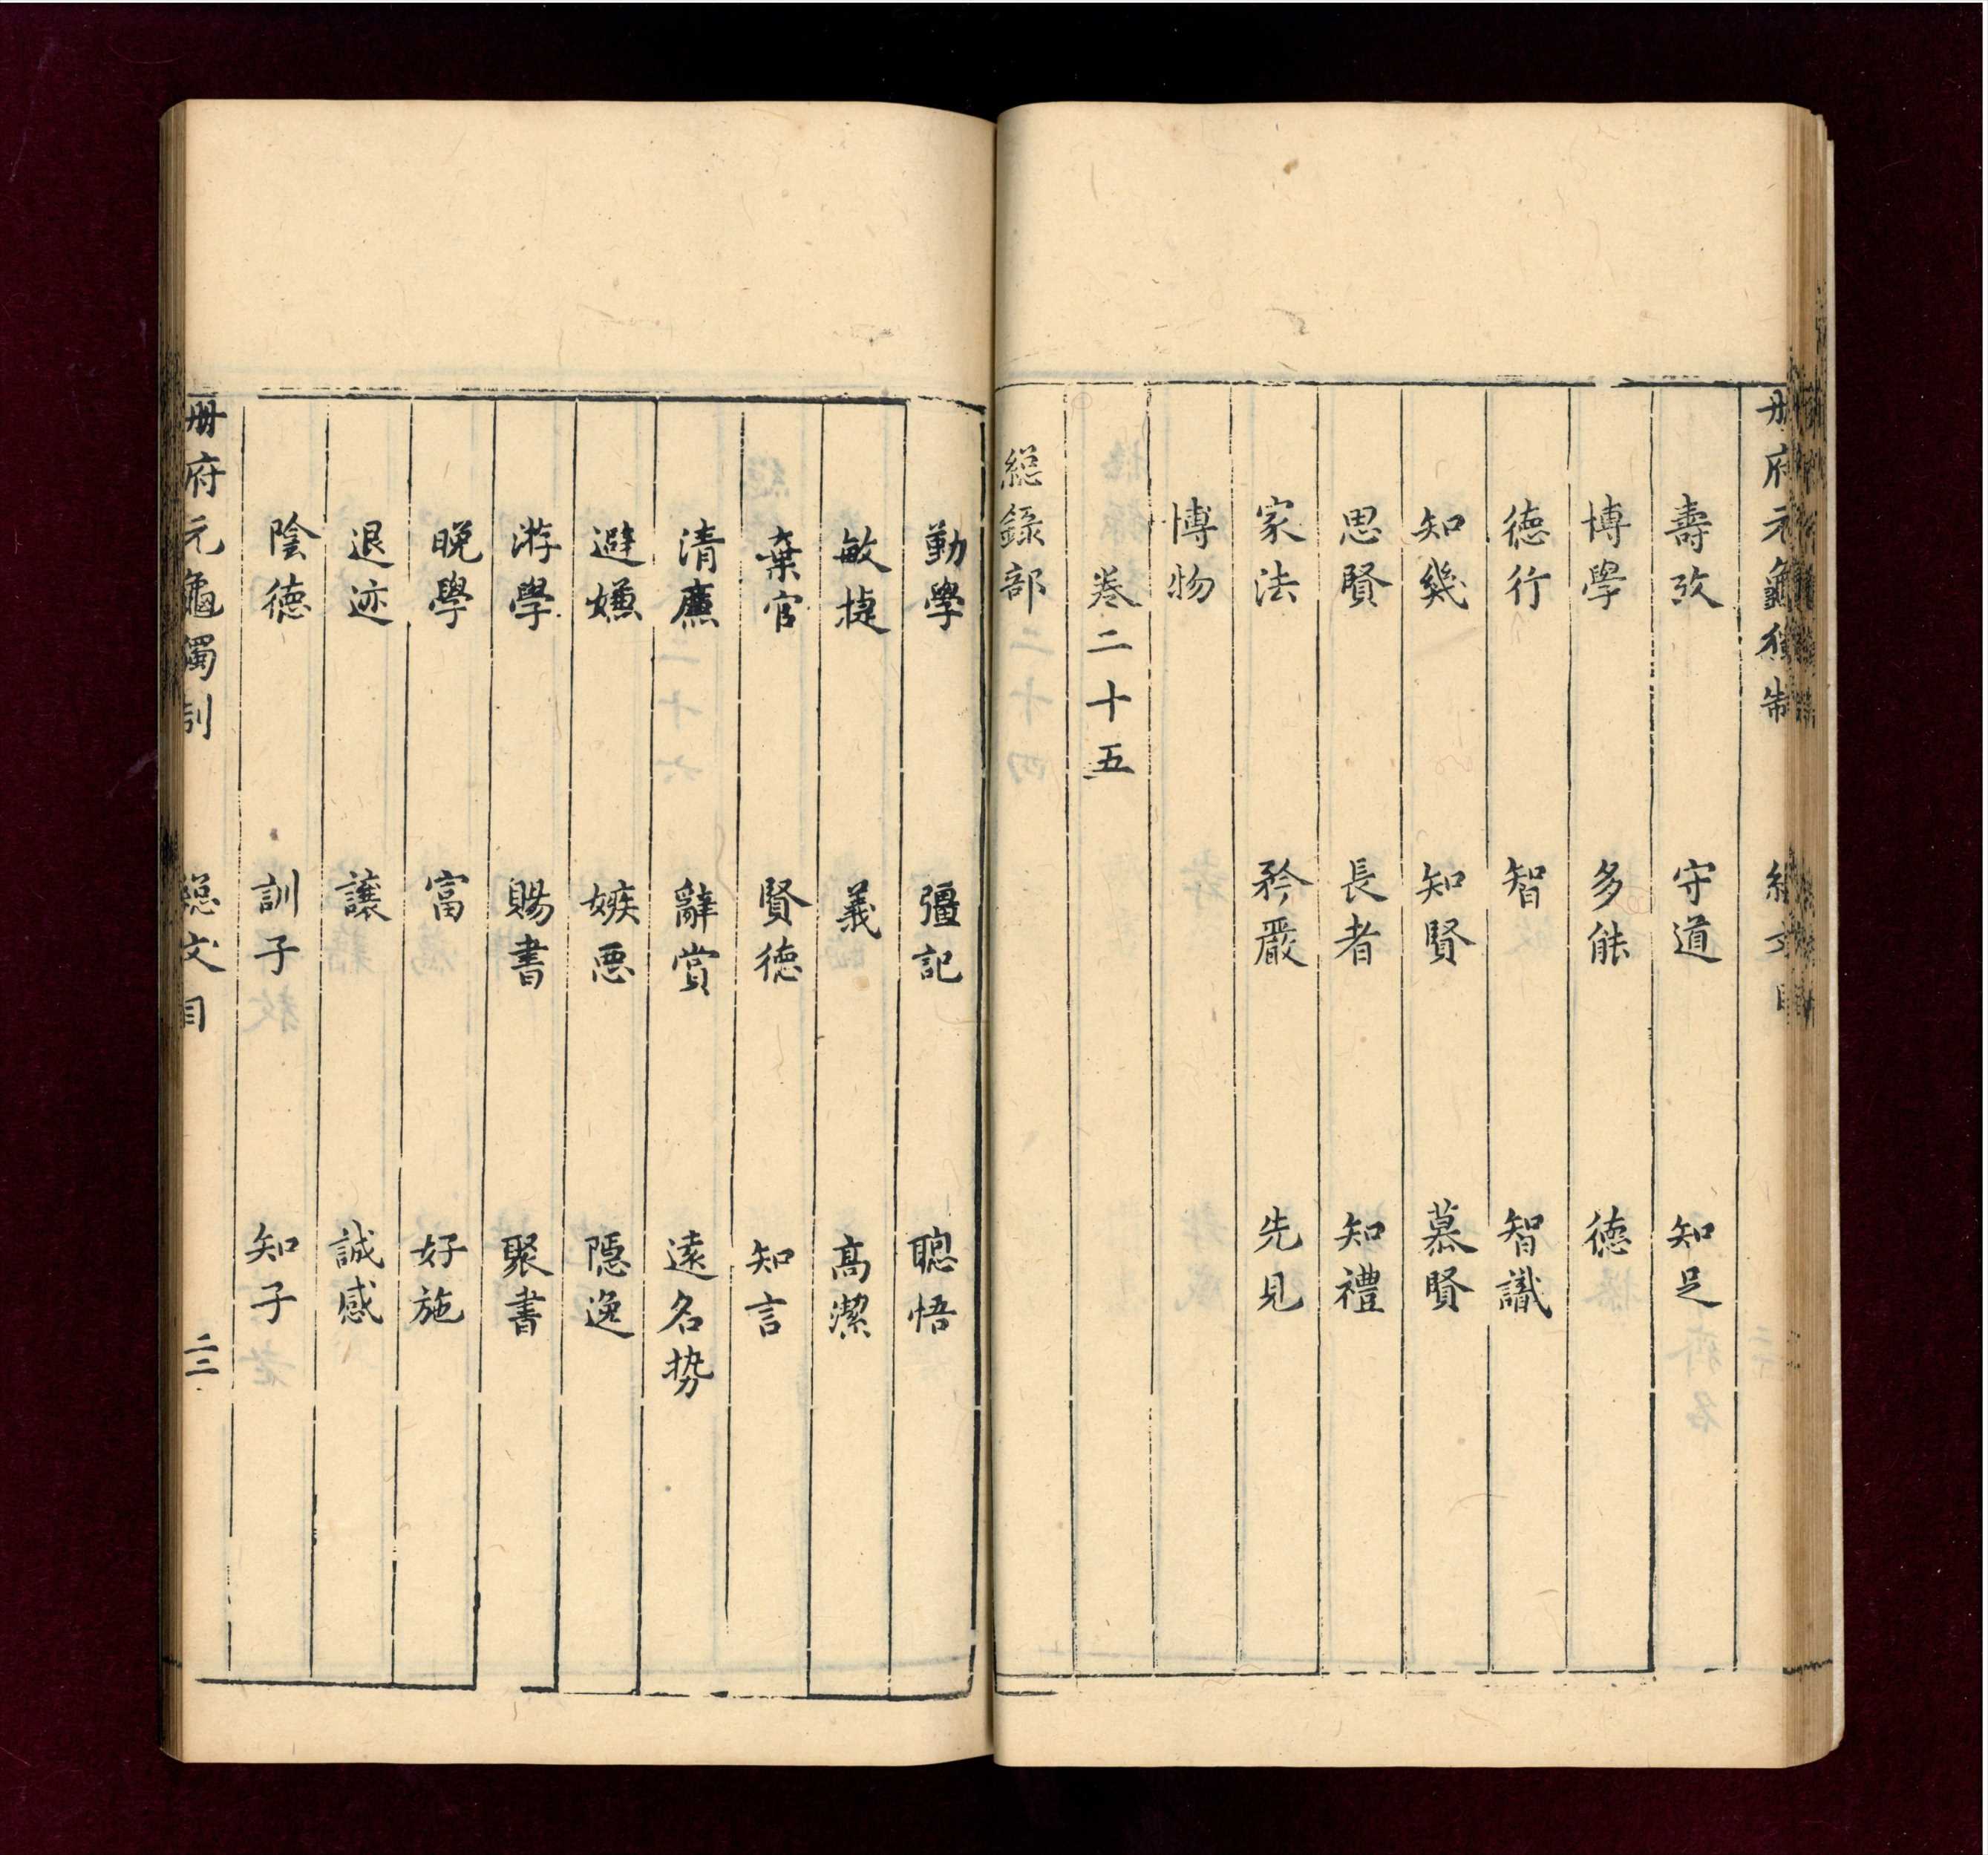 壽攷　守道　知足
博學　多能　德
德行　智　智識
知幾　知賢　慕賢
思賢　長者　知禮
家法　矜嚴　先見
博物
卷二十五
緫録部
勤學　彊記　聰悟
敏捷　義　高潔
棄官　賢德　知言
清廉　辭賞　遠名勢
避嫌　嫉惡　隱逸
游學　賜書　聚書
晚學　富　好施
退迹　讓　誠感
陰德　訓子　知子
册府元龜　緫文目　二三